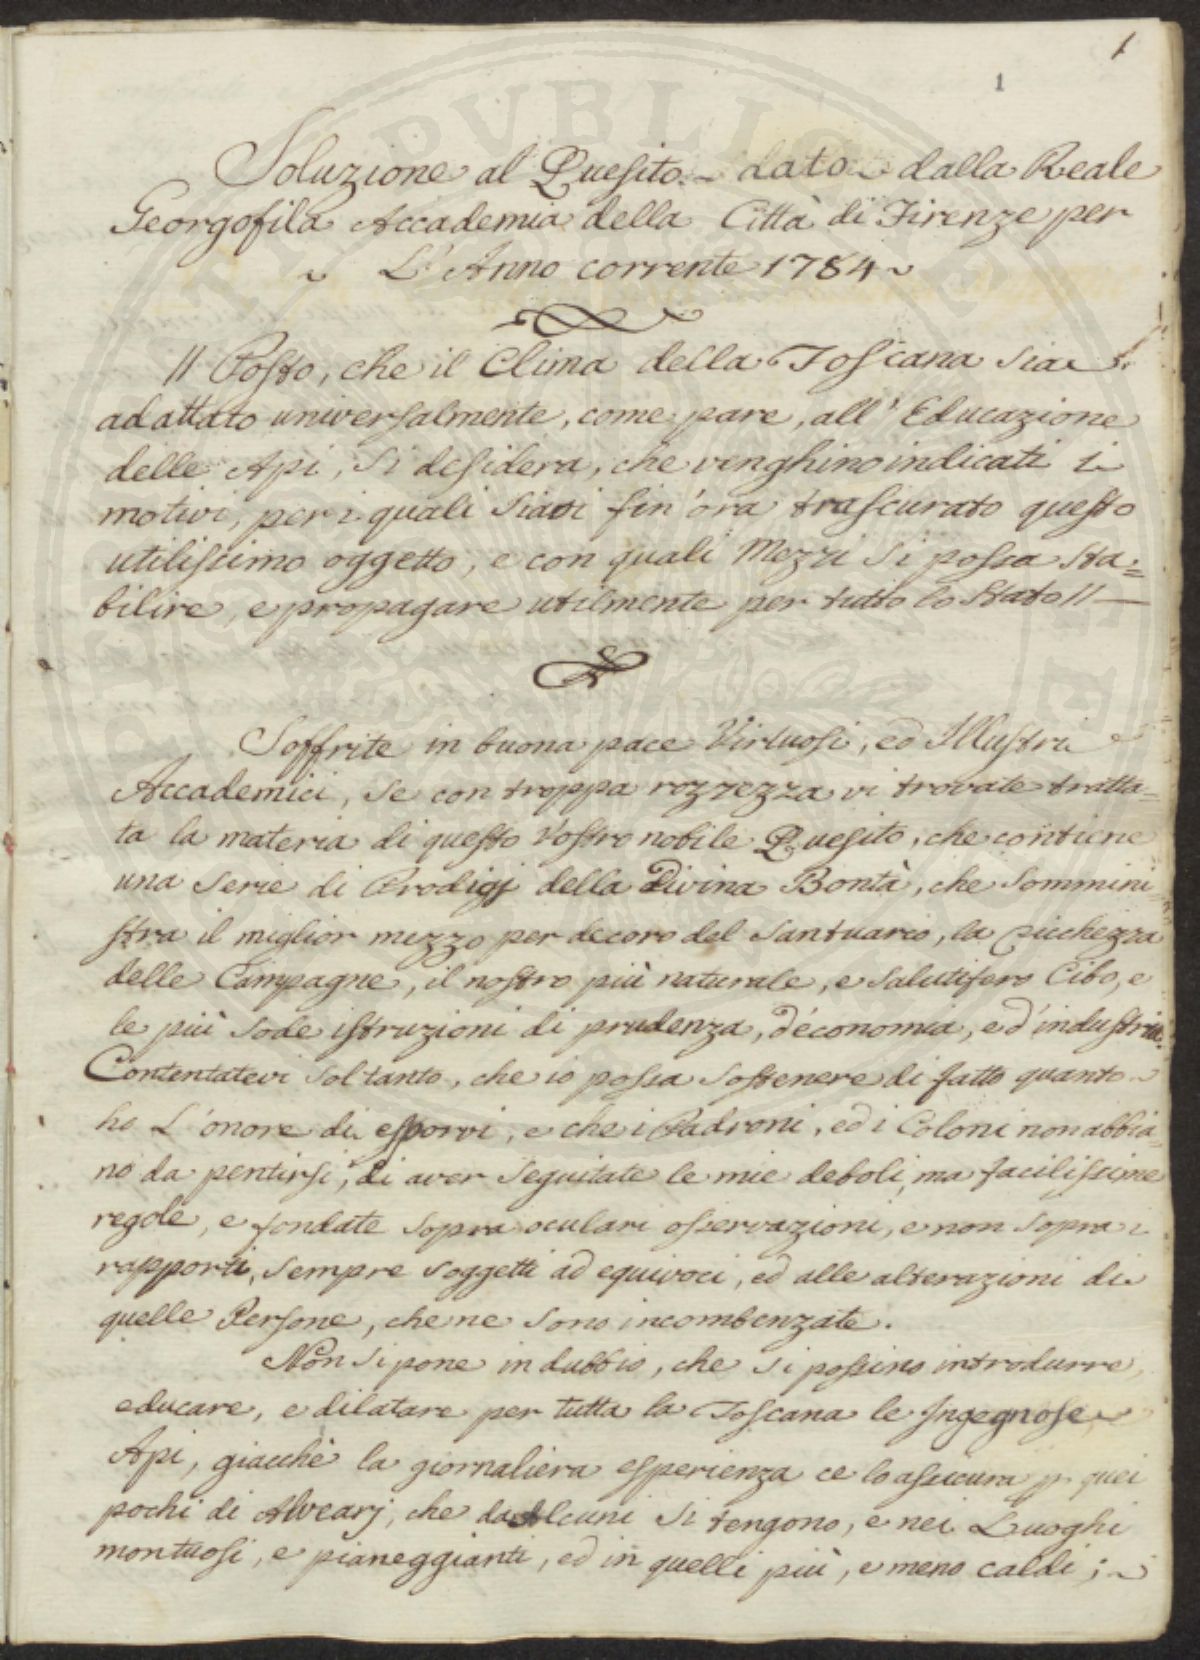 1
1
Soluzione al Quesito dato dalla Reale
Georgofila Accademia della Città di Firenze per
L'Anno corrente 1784
// Posto, che il Clima della Toscana sia
adattato universalmente, come pare, all'Educazione
delle Api, si desidera, che venghino indicati i
motivi, per i quali siasi fin'ora trascurato questo
utilissimo oggetto, e con quali Mezzi si possa sta=
bilire, e propagare utilmente per tutto lo Stato // —
Soffrite in buona pace Virtuosi, ed Illustri
Accademici, se con troppa rozzezza vi trovate tratta=
ta la materia di questo vostro nobile Quesito, che contiene
una serie di Prodigj della Divina Bontà, che sommini=
stra il miglior mezzo per decoro del Santuario, la ricchezza
delle Campagne, il nostro più naturale, e salutifero Cibo, e
le più sode istruzioni di prudenza, d'economia, e d'industria.
Contentatevi soltanto, che io possa sostenere di fatto quanto
ho l'onore di esporvi, e che i Padroni, ed i Coloni non abbia=
no da pentirsi, di aver seguitate le mie deboli, ma facilissime
regole, e fondate sopra oculari osservazioni, e non sopra i
rapporti, sempre soggetti ad equivoci, ed alle alterazioni di
quelle Persone, che ne sono incombenzate.
Non si pone in dubbio, che si possino introdurre,
educare, e dilatare per tutta la Toscana le Ingegnose
Api, giacchè la giornaliera esperienza ce lo assicura p. quei
pochi di Alvearj, che da Alcuni si tengono, e nei Luoghi
montuosi, e pianeggianti, ed in quelli più, e meno caldi;
PVBLIC